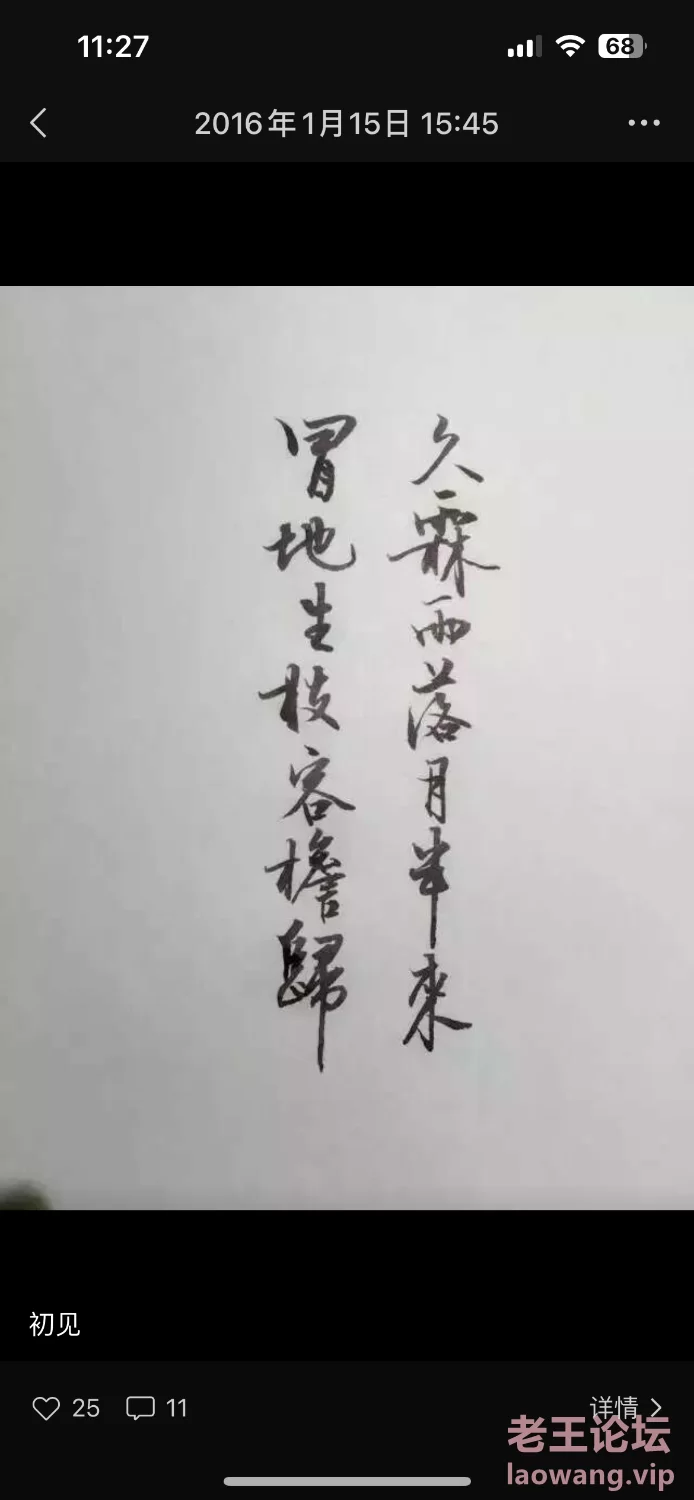 11:27
68
2016年1月15日 15:45
久霖雨落月半來
冒地生枝容檐歸
初见
25 11
详情
老王论坛
laowang.vip